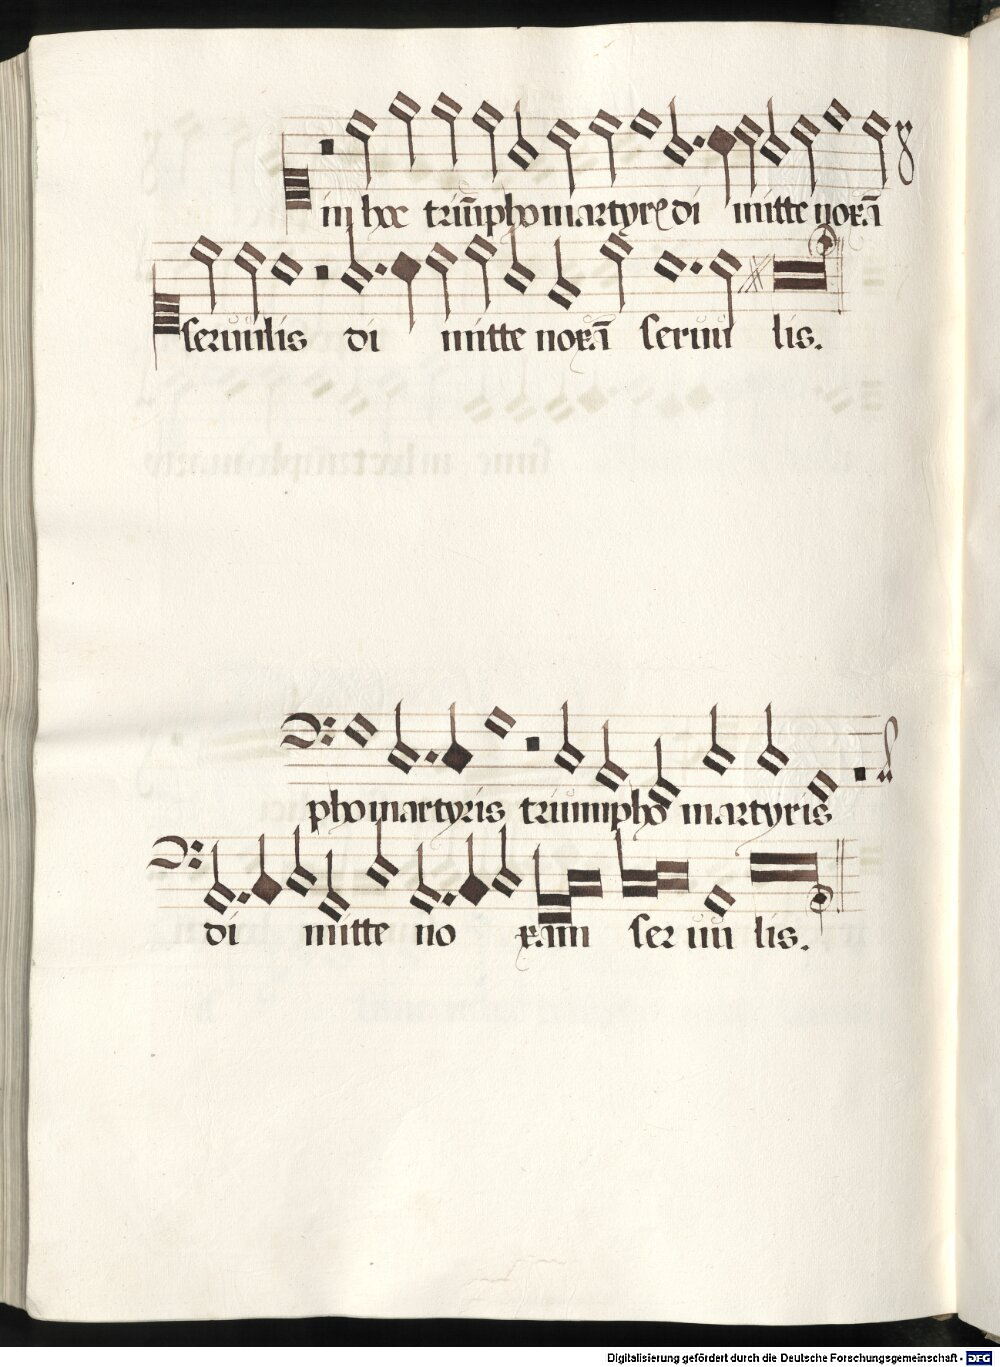 in hoc triūphomartyrꝭ di mitte noxā
seruulis di mitte noxā seruu lis.
phomartyris triumpho martyris
di mitte no xam ser uu lis.
Digitalisierung gefördert durch die Deutsche Forschungsgemeinschaft - DFG